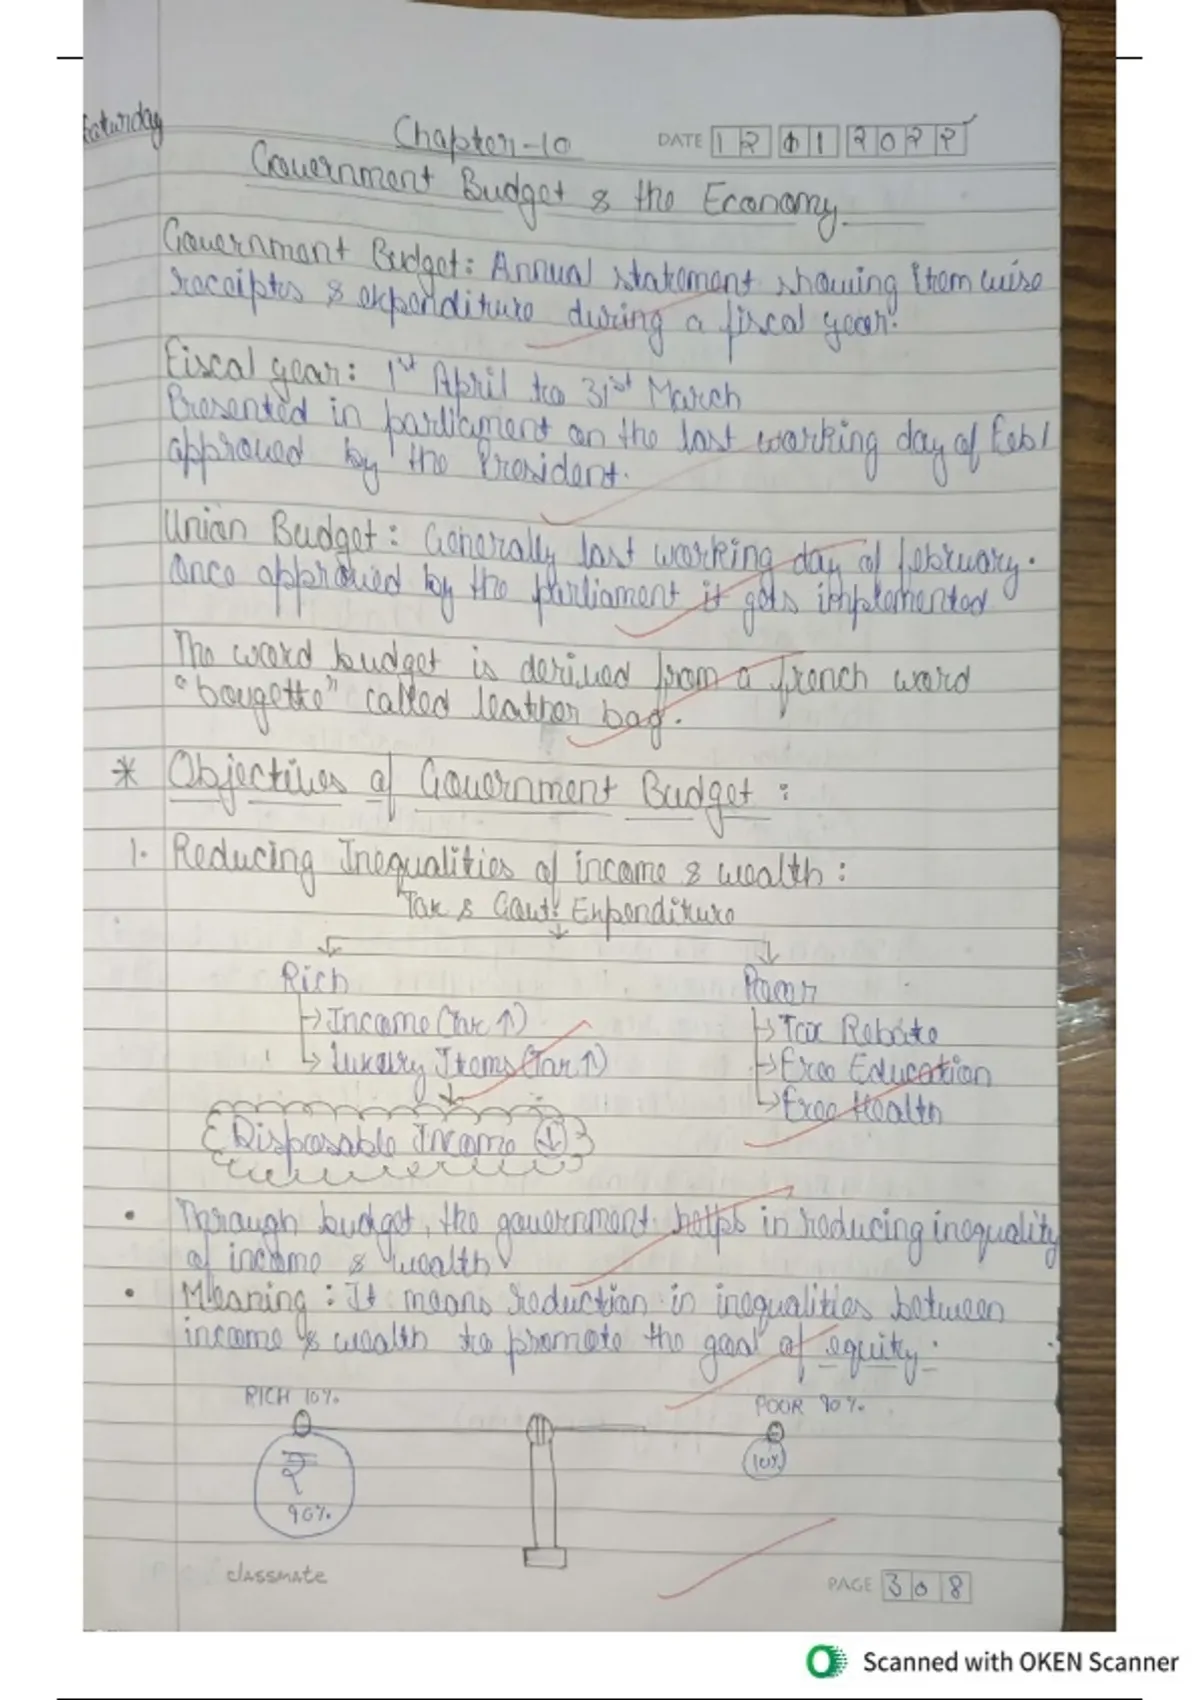 Saturday
Chapter-10
DATE 12 01 2022
Government Budget & the Economy
Government Budget: Annual statement showing item wise
receiptes & expenditure during a fiscal year.
Fiscal year: 1st April to 31st March
Presented in parliament on the last working day of Feb/
approved by the President.
Union Budget: Generally last working day of february.
Once approved by the parliament it gets implemented
The word budget is derived from a french word
"bougette" called leather bag.
* Objectives of Government Budget :
1. Reducing Inequalities of income & wealth :
Tax & Govt. Expenditure
Rich
Poor
→ Income (Tax ↑)
→ Tax Rebate
→ Luxury Items (Tax ↑)
→ Free Education
→ Free Health
Disposable Income ↓
• Through budget, the government helps in reducing inequality
of income & wealth
• Meaning : It means reduction in inequalities between
income & wealth to promote the goal of equity.
RICH 10%
POOR 90%
₹
90%
10%
classmate
PAGE 308
Scanned with OKEN Scanner